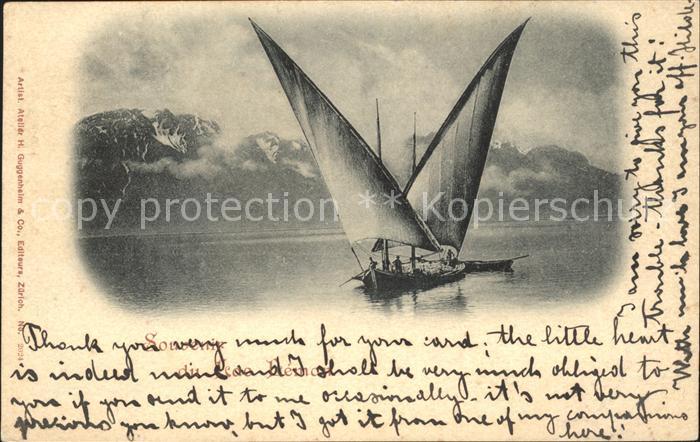 Artist. Atelier H. Guggenheim & Co., Editeurs, Zürich. No. 2024
copy protection Kopierschutz
Souvenir
du Lac Léman
Thank you very much for your card; the little heart
is indeed mine and I shall be very much obliged to
you if you send it to me occasionally - it's not very
precious you know, but I got it from one of my companions
here!
I am sorry to give you this
trouble - thanks for it!
With much love I am yours aff.